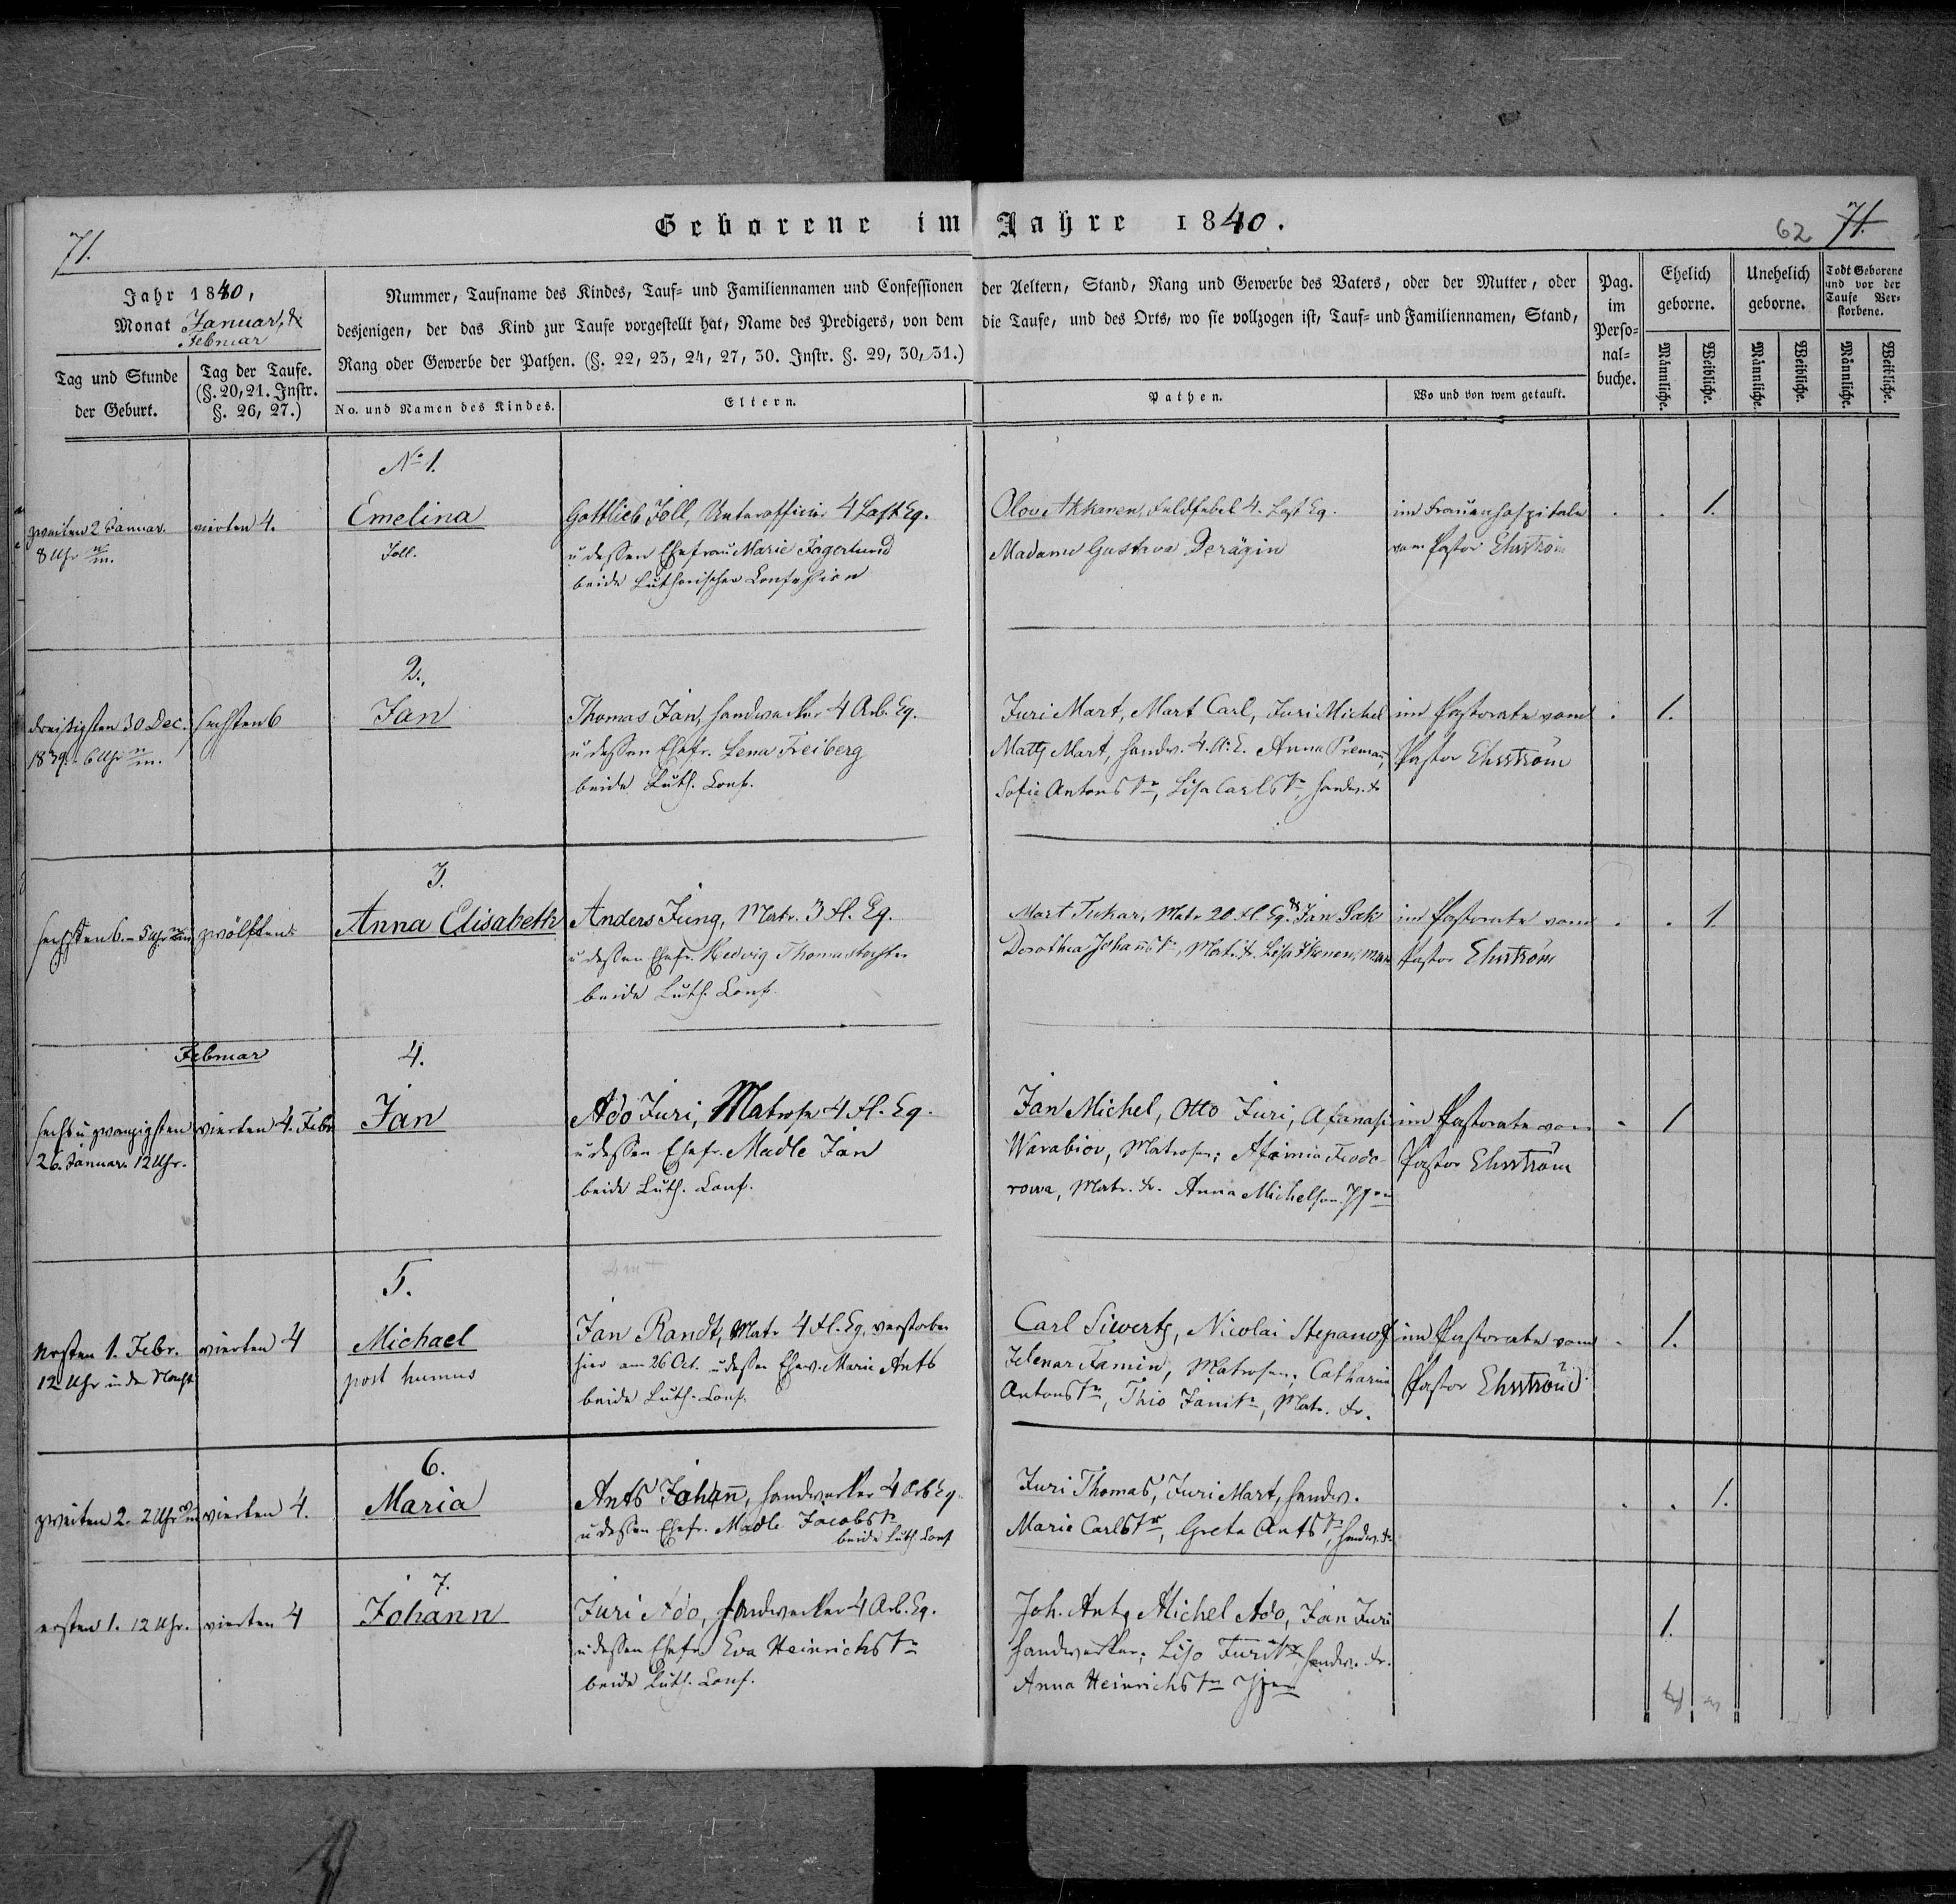 Geborene im Jahre 1840.
71.
62 71.
Jahr 1840,
Monat Januar, &
Februar
Tag und Stunde
der Geburt.
Tag der Taufe.
(§. 20, 21. Instr.
§. 26, 27.)
Nummer, Taufname des Kindes, Tauf- und Familiennamen und Confessionen der Aeltern, Stand, Rang und Gewerbe des Vaters, oder der Mutter, oder
desjenigen, der das Kind zur Taufe vorgestellt hat, Name des Predigers, von dem die Taufe, und des Orts, wo sie vollzogen ist, Tauf- und Familiennamen, Stand,
Rang oder Gewerbe der Pathen. (§. 22, 23, 24, 27, 30. Instr. §. 29, 30, 31.)
No. und Namen des Kindes.
Eltern.
Pathen.
Wo und von wem getauft.
Pag.
im
Perso-
nal-
buche.
Ehelich
geborne.
Unehelich
geborne.
Todt Geborene
und vor der
Taufe Ver-
storbene.
Männliche.
Weibliche.
Männliche.
Weibliche.
Männliche.
Weibliche.
zweiten 2 Januar.
8 Uhr
vierten 4.
No 1.
Emelina
Joll.
Gottlieb Joll, Unterofficier 4 Last Eq.
u dessen Ehefrau Marie Fagerlund
beide Lutherischer Confession
Olov Akkanen, Feldfebel 4. Last Eq.
Madame Gustava Derägin
im Frauenhospitale
vom Pastor Ehrström
1.
dreißigsten 30 Dec.
1839. 6 Uhr
sechsten 6
2.
Jan
Thomas Jan, Handwerker 4 Arb. Eq.
u dessen Ehefr. Lena Freiberg
beide Luth. Conf.
Juri Mart, Mart Carl, Juri Michel
Matts Mart, Handw. 4. A. E. Anna
Sofie Antons, Lisa Carls
im Pastorate vom
Pastor Ehrström
1.
sechsten 6. 5 Uhr
zwölften
3.
Anna Elisabeth
Anders Jung, Matr. 3 Fl. Eq.
u dessen Ehefr. Hedwig Thomastochter
beide Luth. Conf.
Mart Tukar, Matr. 20 Fl. Eq. Jan
Dorothea, Matr. fr. Lisa
im Pastorate vom
Pastor Ehrström
1.
Februar
sechs u zwanzigsten
26. Januar. 12 Uhr.
vierten 4. Febr
4.
Jan
Ado Juri, Matrose 4 Fl. Eq.
u dessen Ehefr. Madle Jan
beide Luth. Conf.
Jan Michel, Otto Juri, Afanasi
Warabiov, Matrosen; Afimia Feodo-
rowa, Matr. fr. Anna
im Pastorate vom
Pastor Ehrström
1
ersten 1. Febr.
12 Uhr in der Nacht
vierten 4
5.
Michael
post humus
Jan Randt, Matr 4 Fl. Eq. verstorben
hier am 26 Oct. u dessen Ehew. Marie Ants
beide Luth. Conf.
Carl Siwertz, Nicolai Stepanof
Famin, Matrosen; Catharina
Antons, Thio, Matr. fr.
im Pastorate vom
Pastor Ehrström
1.
zweiten 2. 2 Uhr
vierten 4.
6.
Maria
Ants Johann, Handwerker 4 Arb Eq.
u dessen Ehefr. Madle Jacobs
beide Luth Conf
Juri Thomas, Juri Mart, Handw.
Marie Carls, Greta Ants
1.
ersten 1. 12 Uhr.
vierten 4
7.
Johann
Juri Ado, Handwerker 4 Arb. Eq.
u dessen Ehefr. Eva Heinrichs
beide Luth. Conf.
Joh. Ants, Michel Ado, Jan Juri
Handwerker; Liso Juri, Handw. fr.
Anna Heinrichs
1.